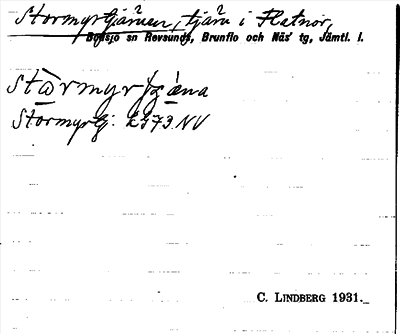 Stormyrtjärnen, tjärn i Flatnor,
Bodsjö sn Revsunds, Brunflo och Näs tg, Jämtl. l.
Stormyrtj: EJ73 NV
C. LINDBERG 1931.